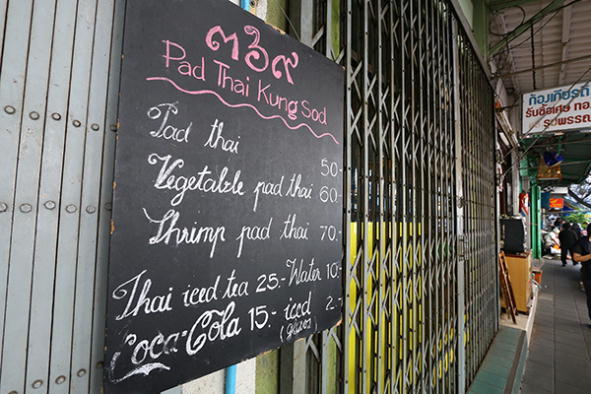 ๓๖๙
Pad Thai Kung Sod
Pad thai 50.-
Vegetable pad thai 60.-
Shrimp pad thai 70.-
Thai iced tea 25.- Water 10.-
Coca-Cola 15.- iced 2.-
(glass)
ห้องเกียรติ
รับซื้อเศษ ทอ